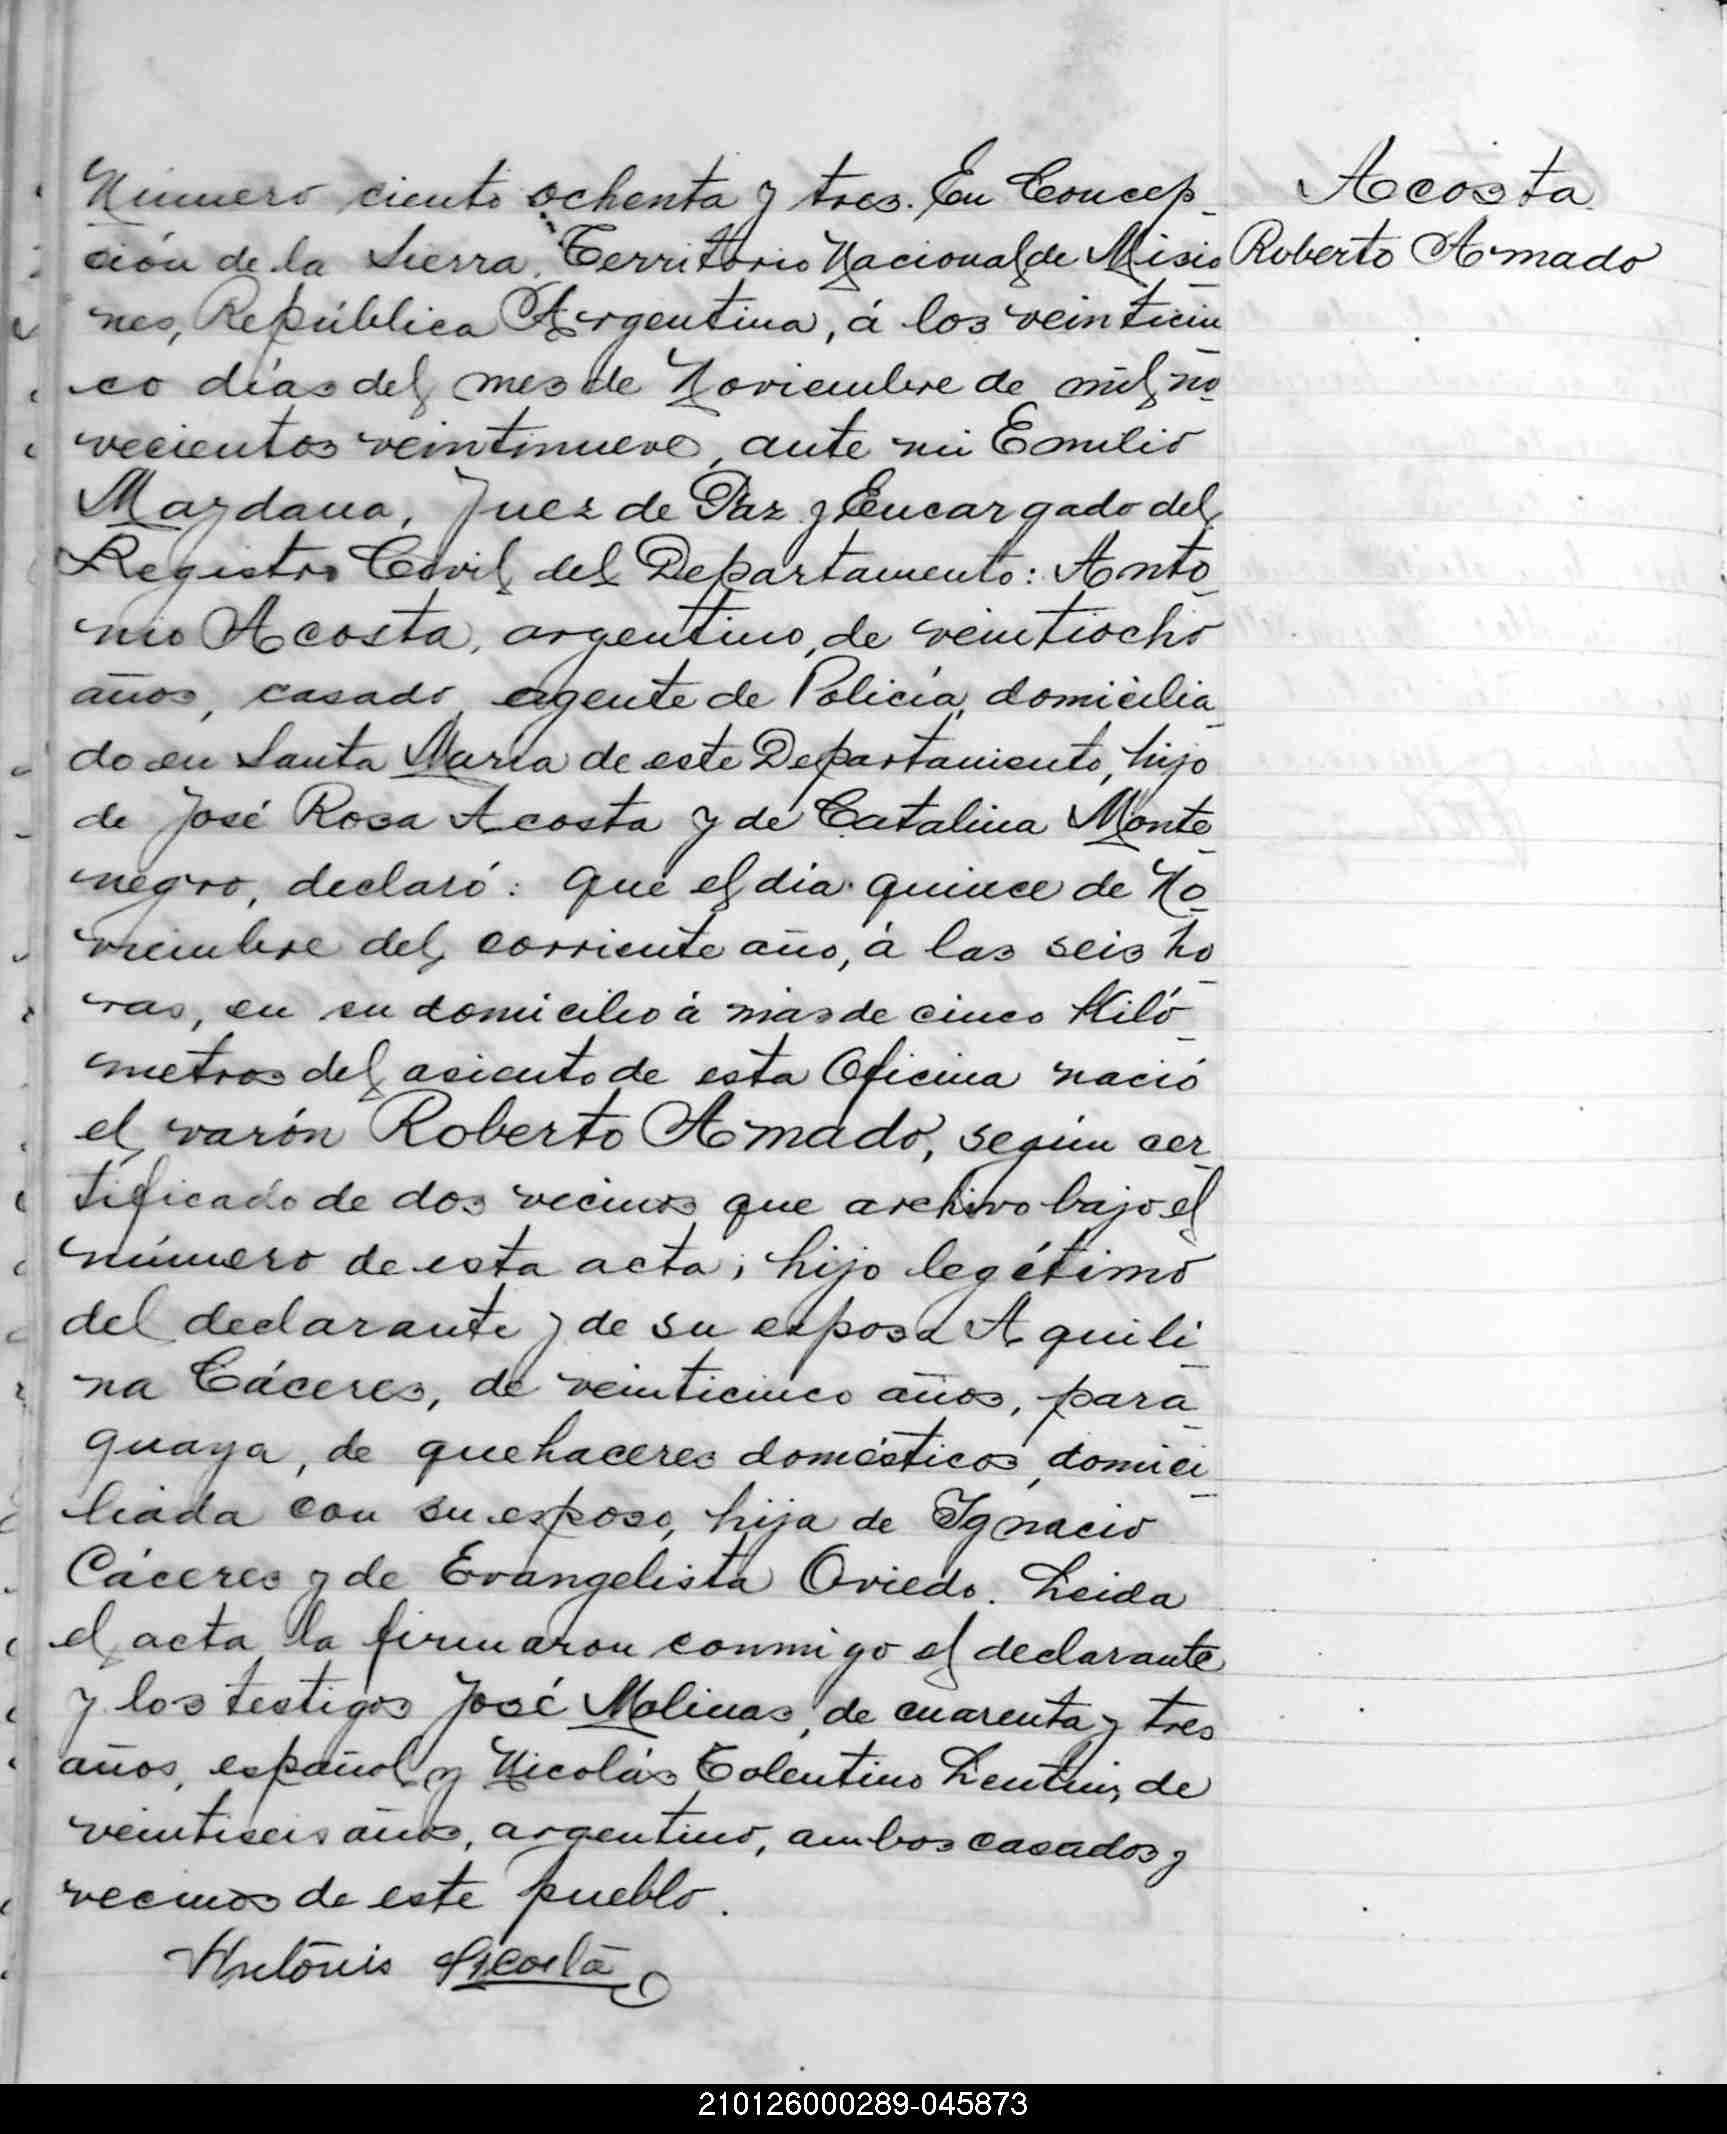 Número ciento ochenta y tres. En Concep-
ción de la Sierra, Territorio Nacional de Misio-
nes, República Argentina, á los veinticin-
co días del mes de Noviembre de mil no-
vecientos veintinueve, ante mi Emilio
Maydana, Juez de Paz y Encargado del
Registro Civil del Departamento: Anto-
nio Acosta, argentino, de veintiocho
años, casado, agente de Policía, domicilia-
do en Santa María de este Departamento, hijo
de José Rosa Acosta y de Catalina Monte-
negro, declaró: Que el día quince de No-
viembre del corriente año, á las seis ho-
ras, en su domicilio á más de cinco Kiló-
metros del asiento de esta Oficina nació
el varón Roberto Amado, según cer-
tificado de dos vecinos que archivo bajo el
número de esta acta; hijo legítimo
del declarante y de su esposa Aquili-
na Cáceres, de veinticinco años, para-
guaya, de quehaceres domésticos, domici-
liada con su esposo, hija de Ignacio
Cáceres y de Evangelista Oviedo. Leida
el acta la firmaron conmigo el declarante
y los testigos José Molinas, de cuarenta y tres
años, español y Nicolás Tolentino de
veintiseis años, argentino, ambos casados y
vecinos de este pueblo.
Antonio Acosta
Acosta
Roberto Amado
210126000289-045873